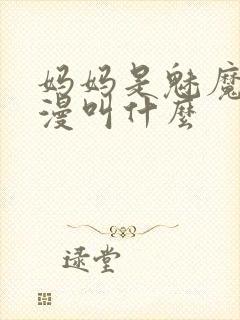 妈妈是魅魔
漫叫什麽
逯堂